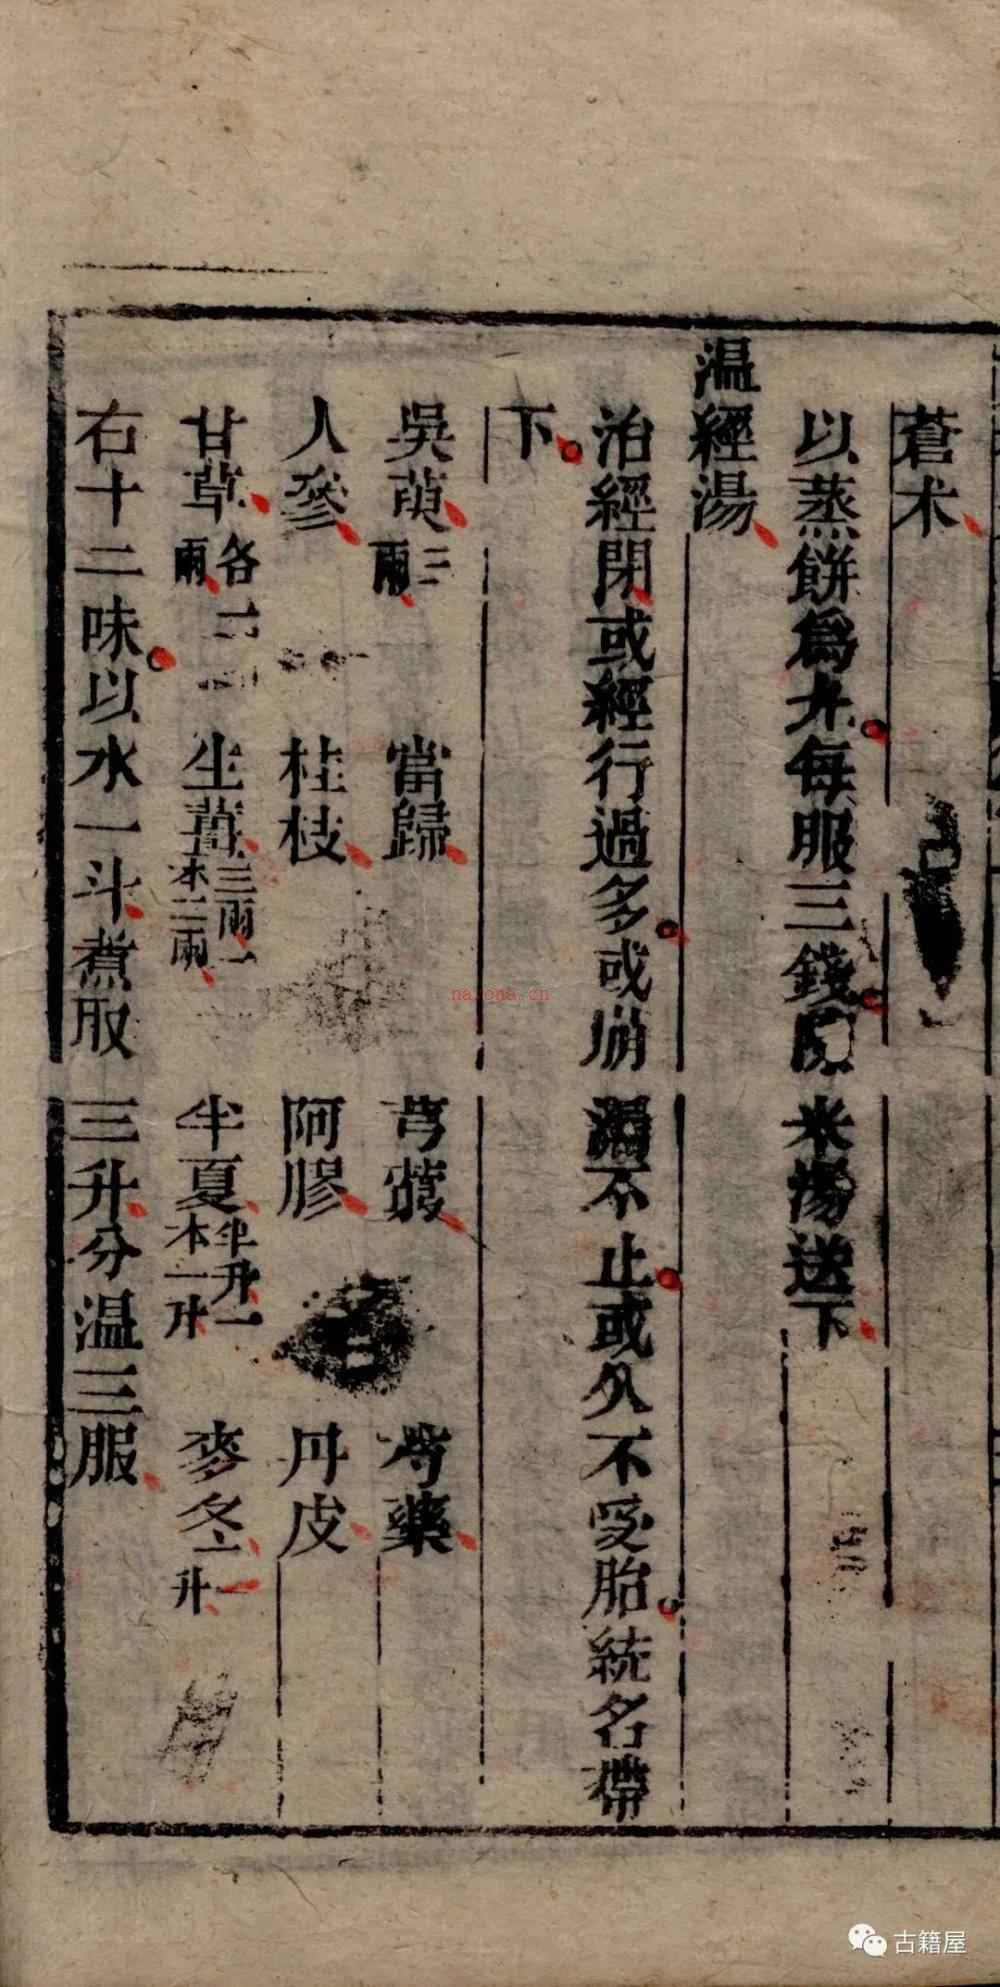 蒼术
以蒸餅爲丸每服三錢陳米湯送下
温經湯
治經閉或經行過多或崩漏不止或久不受胎統名帶
下
吳萸三兩 當歸 芎藭 芍藥
人參 桂枝 阿膠 丹皮
甘草各二兩 生薑三兩一本二兩 半夏半升一本一升 麥冬一升
右十二味以水一斗煮取三升分温三服
nayona.cn
古籍屋